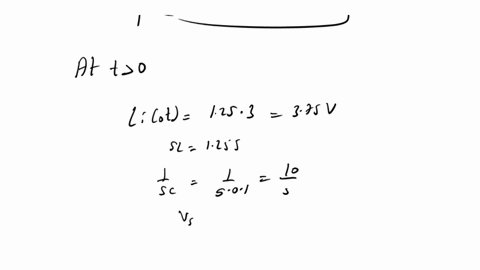 At t>0
Li(0t) = 1.25 · 3 = 3.75 V
SL = 1.25 s
1/sc = 1/s·0.1 = 10/s
Vs